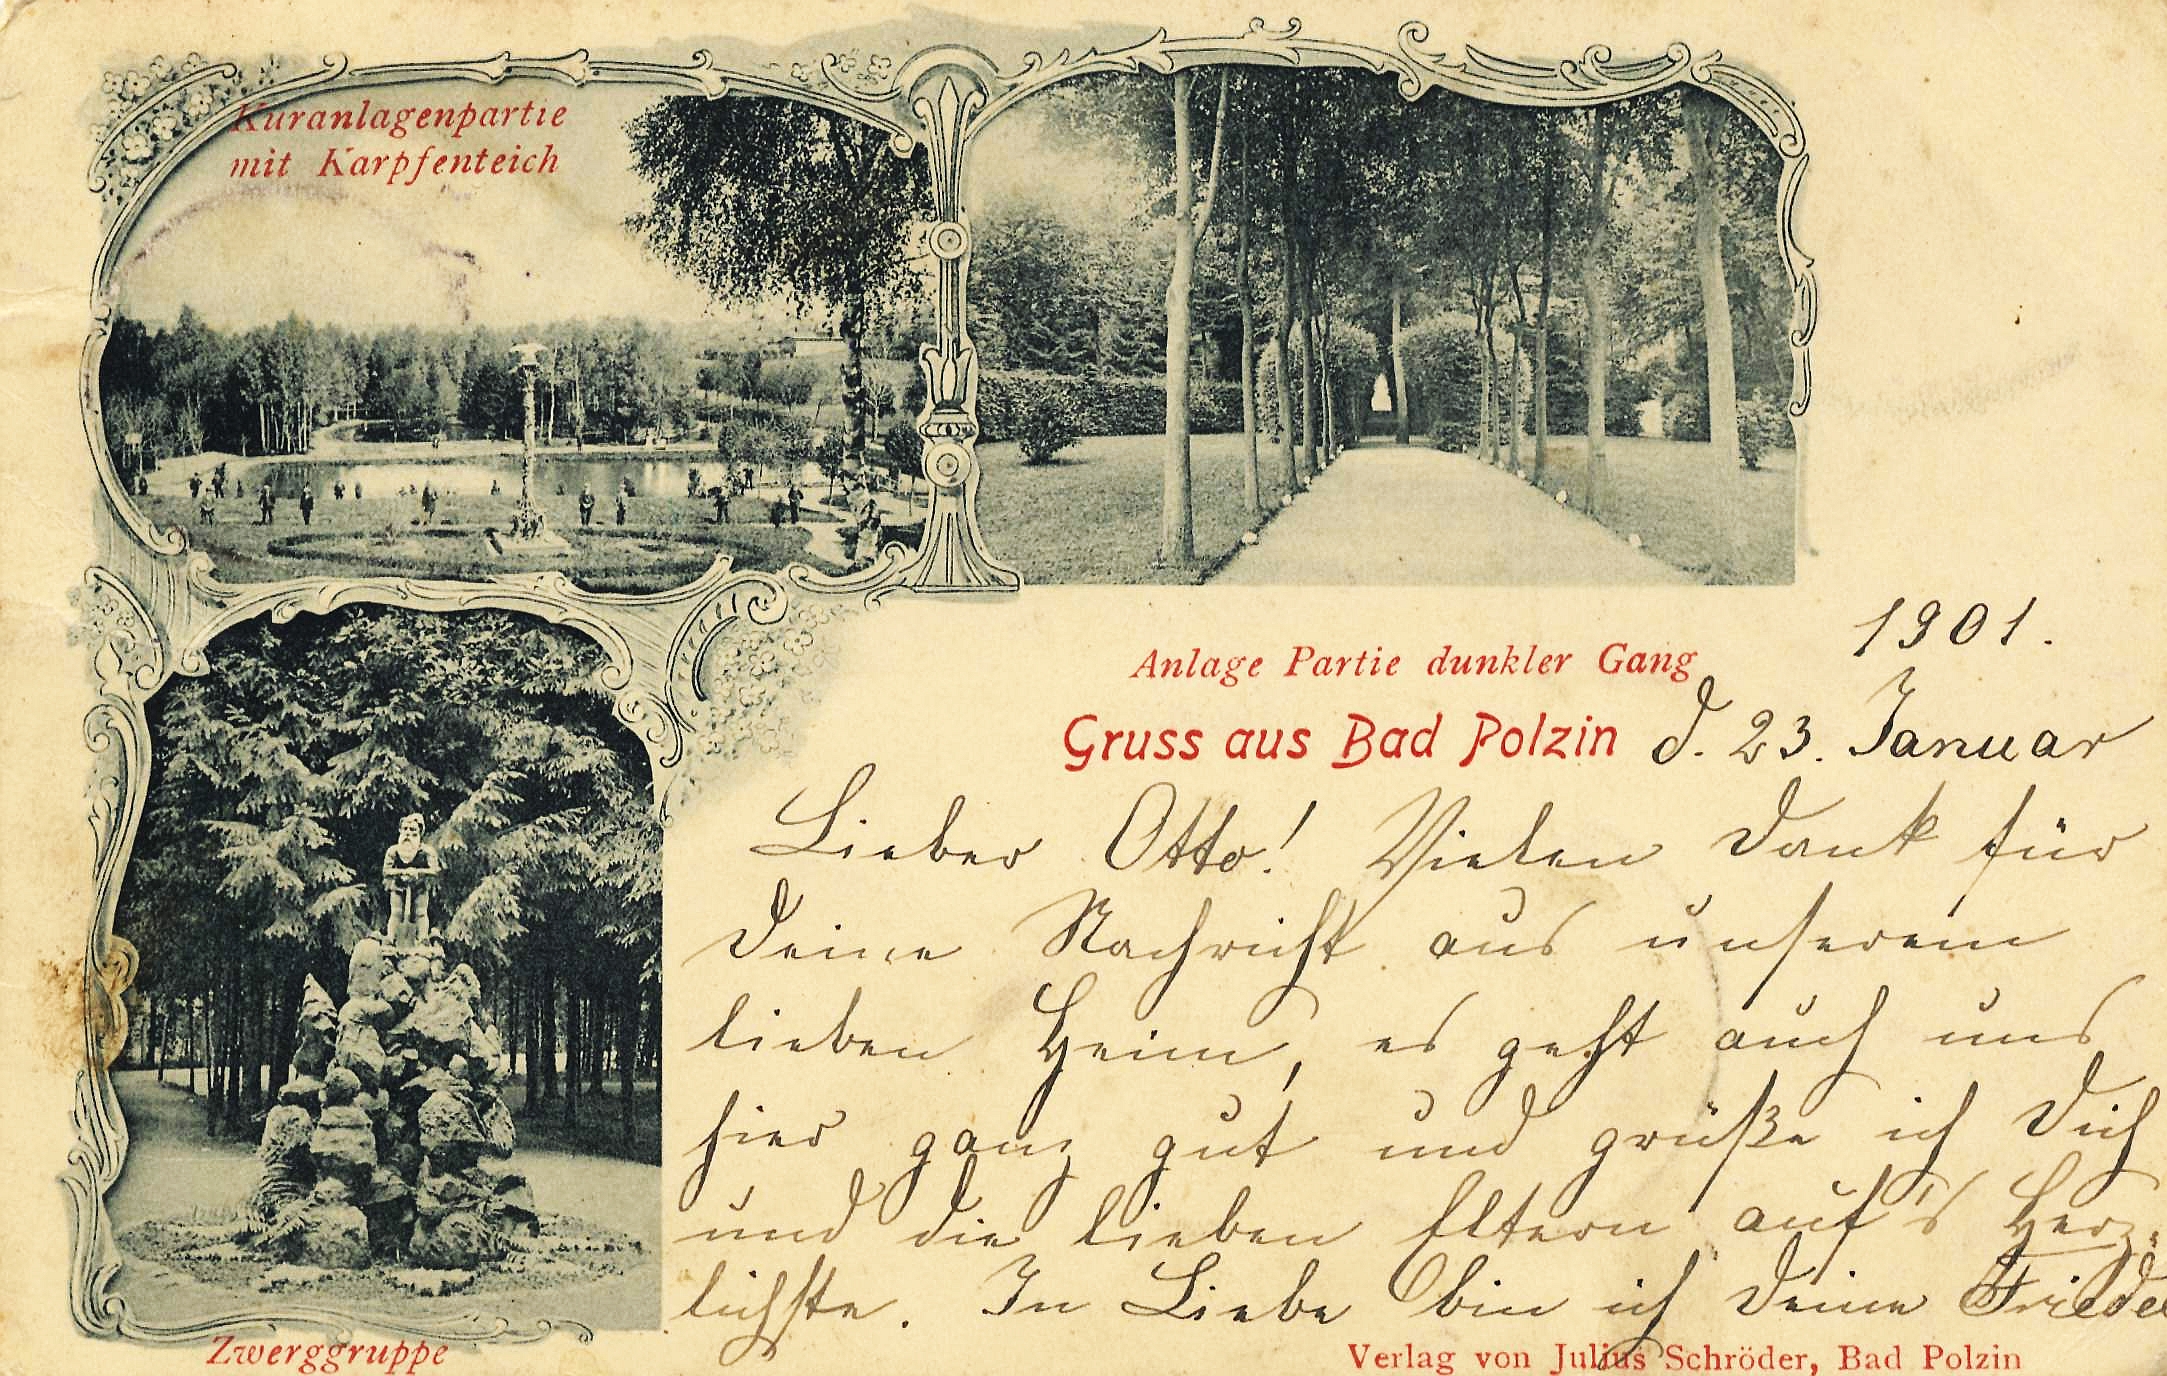 Kuranlagenpartie
mit Karpfenteich
Anlage Partie dunkler Gang
1901.
Gruss aus Bad Polzin
d. 23. Januar
Lieber Otto! Vielen Dank für
Deine Nachricht aus unserem
lieben Heim, es geht auch uns
hier ganz gut und grüße ich Dich
und die lieben Eltern auf's Herz-
lichste. In Liebe bin ich Deine Friedel
Zwerggruppe
Verlag von Julius Schröder, Bad Polzin